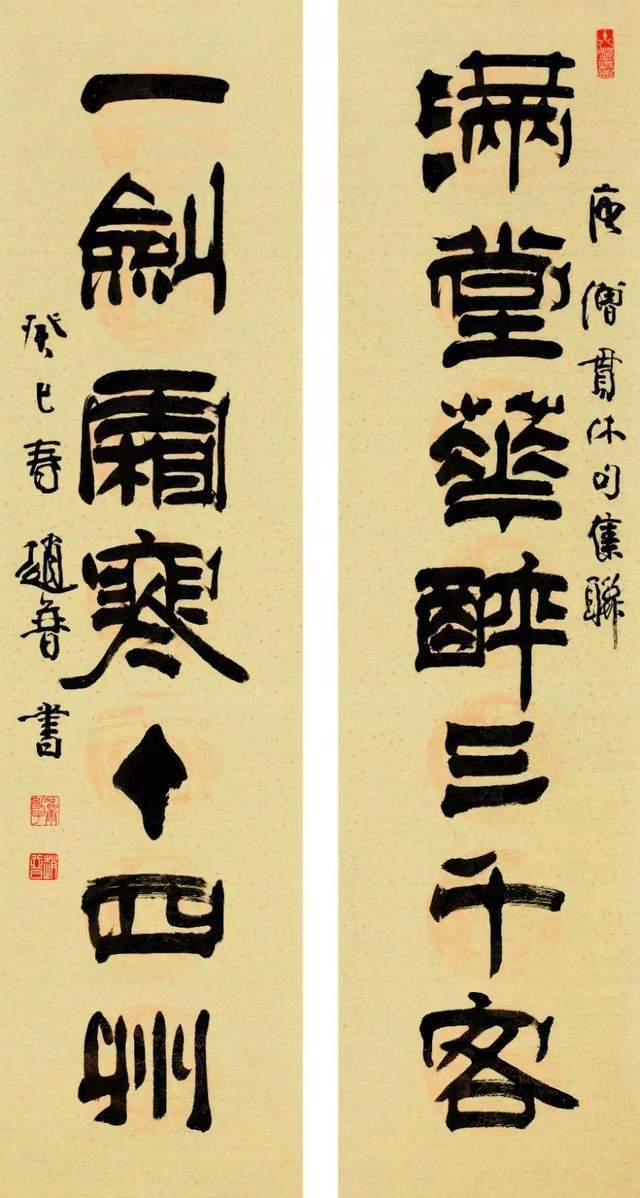 唐僧貫休句集聯
滿堂華醉三千客
一劍霜寒十四州
癸巳春趙普書